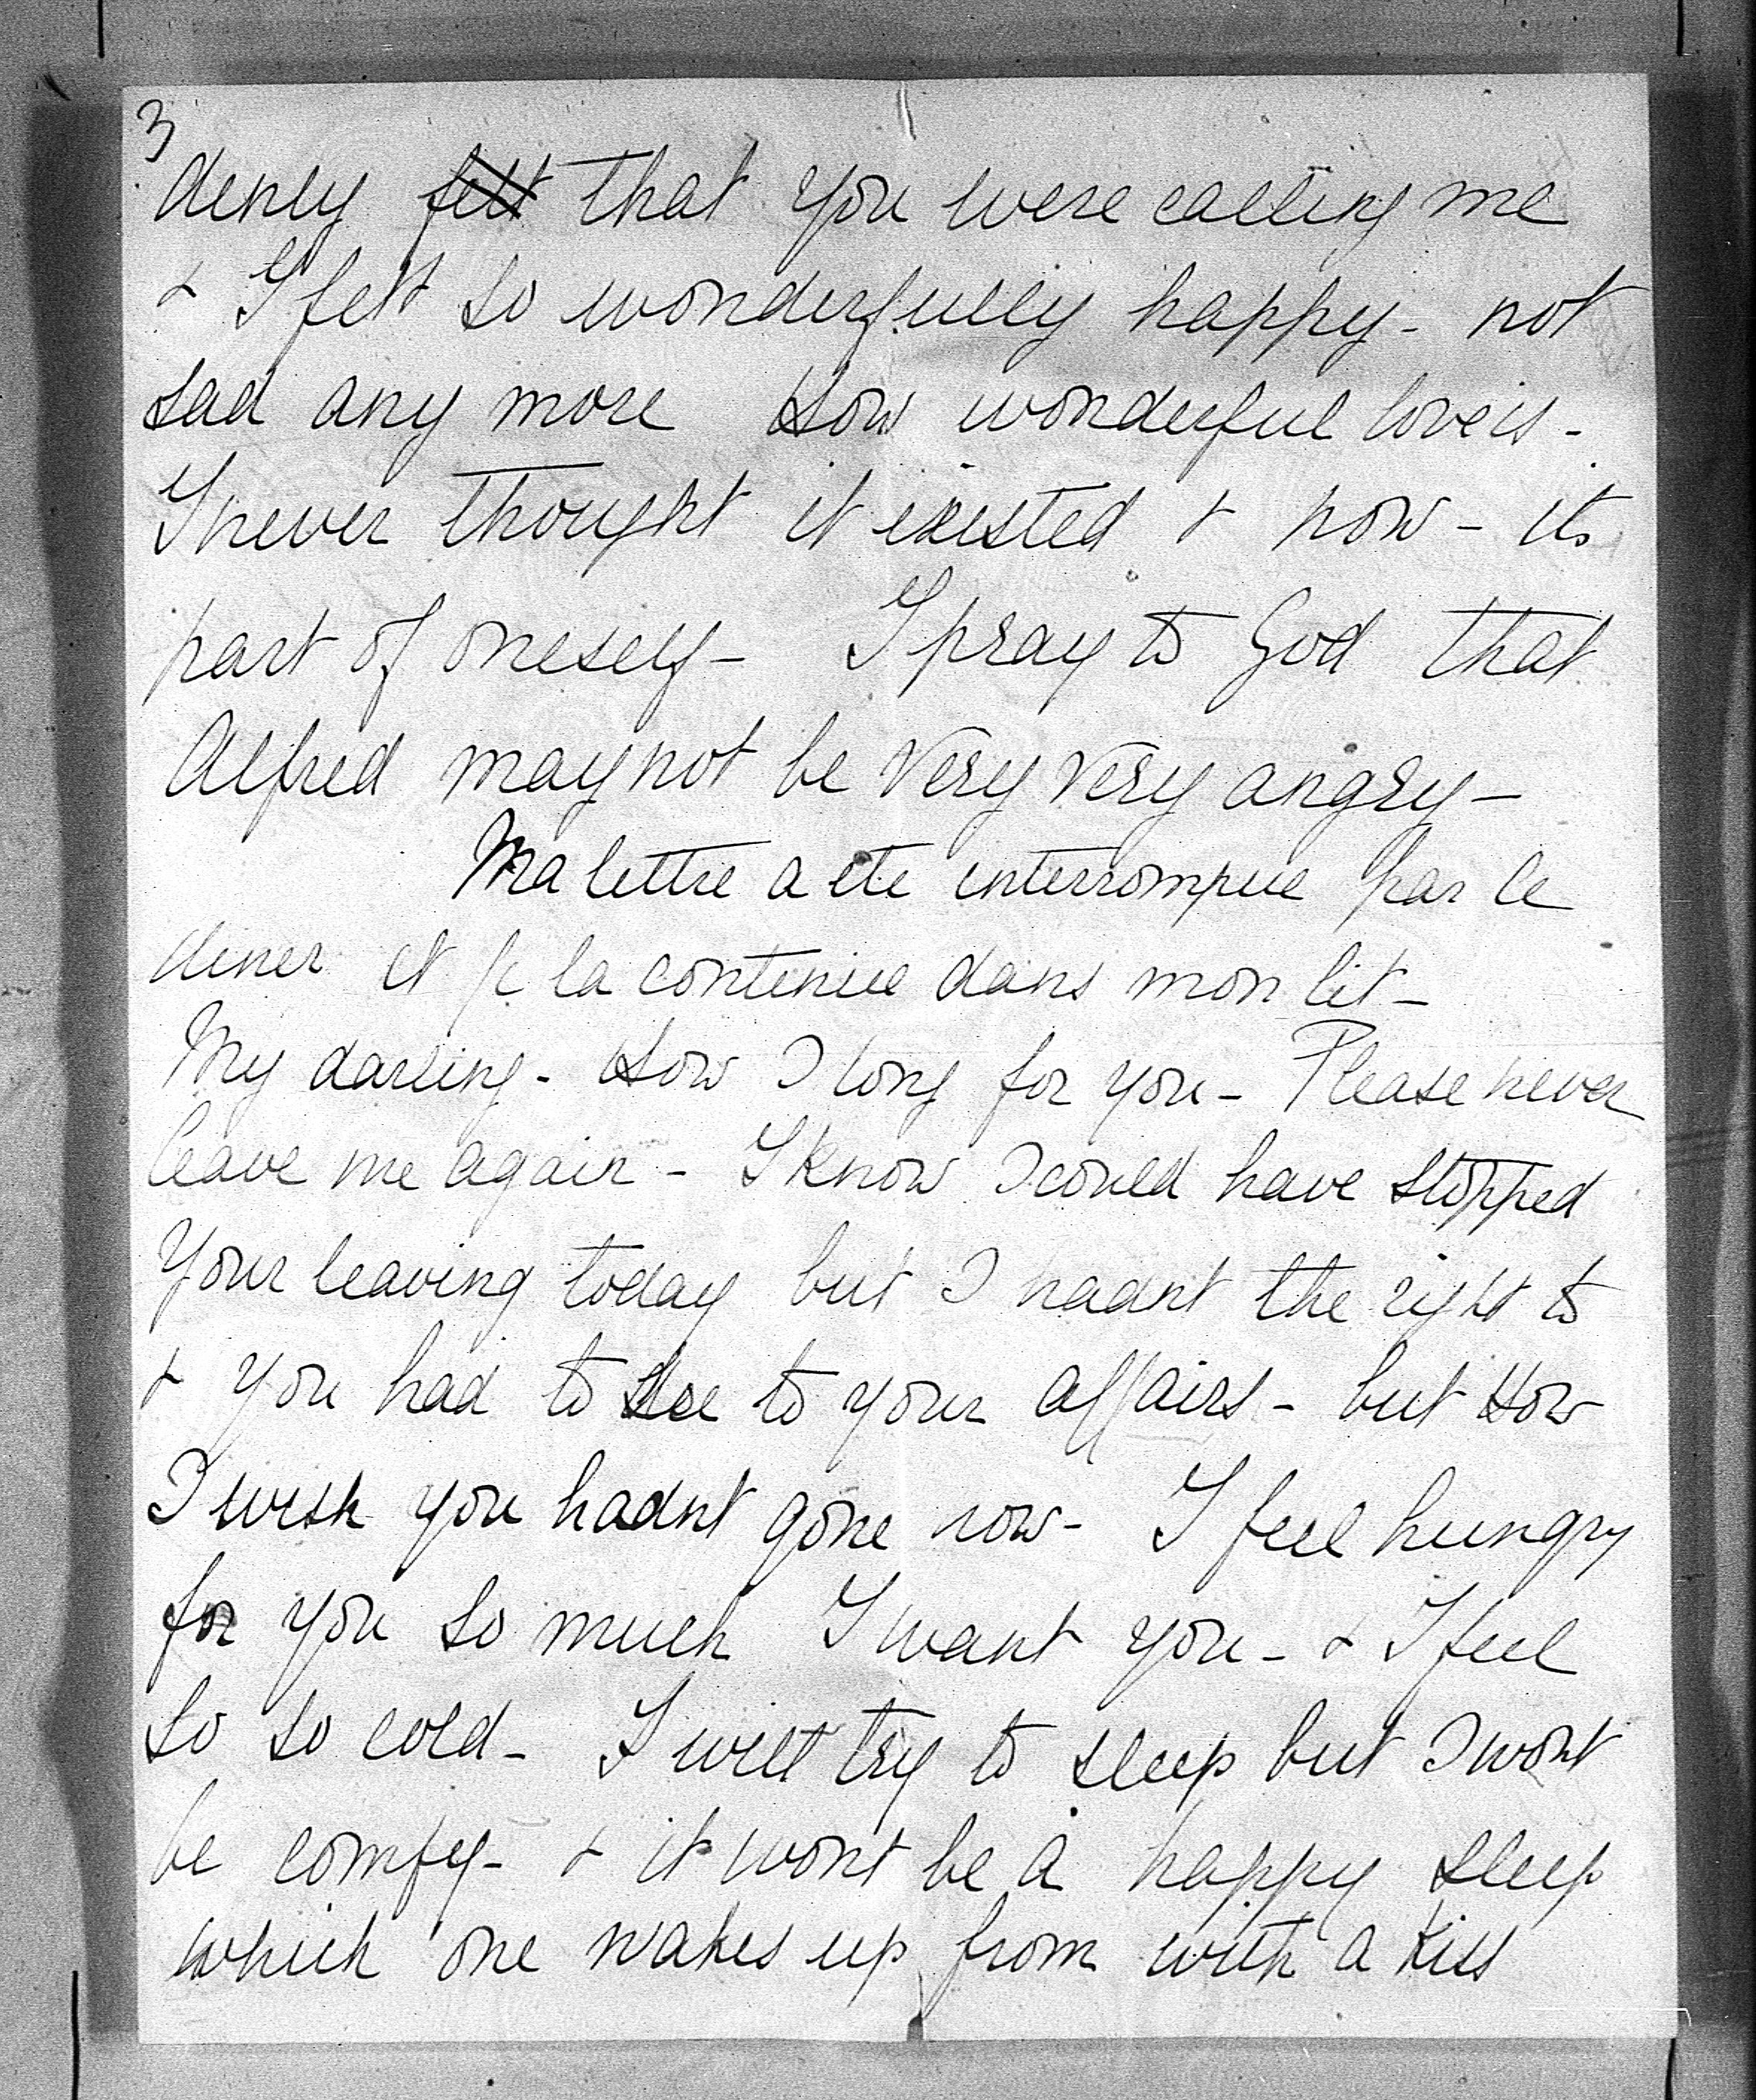 3
denly felt that you were calling me
& I felt so wonderfully happy - not
sad any more How wonderful love is -
I never thought it existed & now - its
part of oneself - I pray to God that
Alfred may not be very very angry -
Ma lettre a ete interrompue par le
diner et je la continue dans mon lit -
My darling - How I long for you - Please never
leave me again - I know I could have stopped
your leaving today but I hadnt the right to
& you had to see to your affairs - but How
I wish you hadnt gone now - I feel hungry
for you so much I want you - & I feel
so so cold - I will try to sleep but I wont
be comfy - & it wont be a happy sleep
which one wakes up from with a kiss